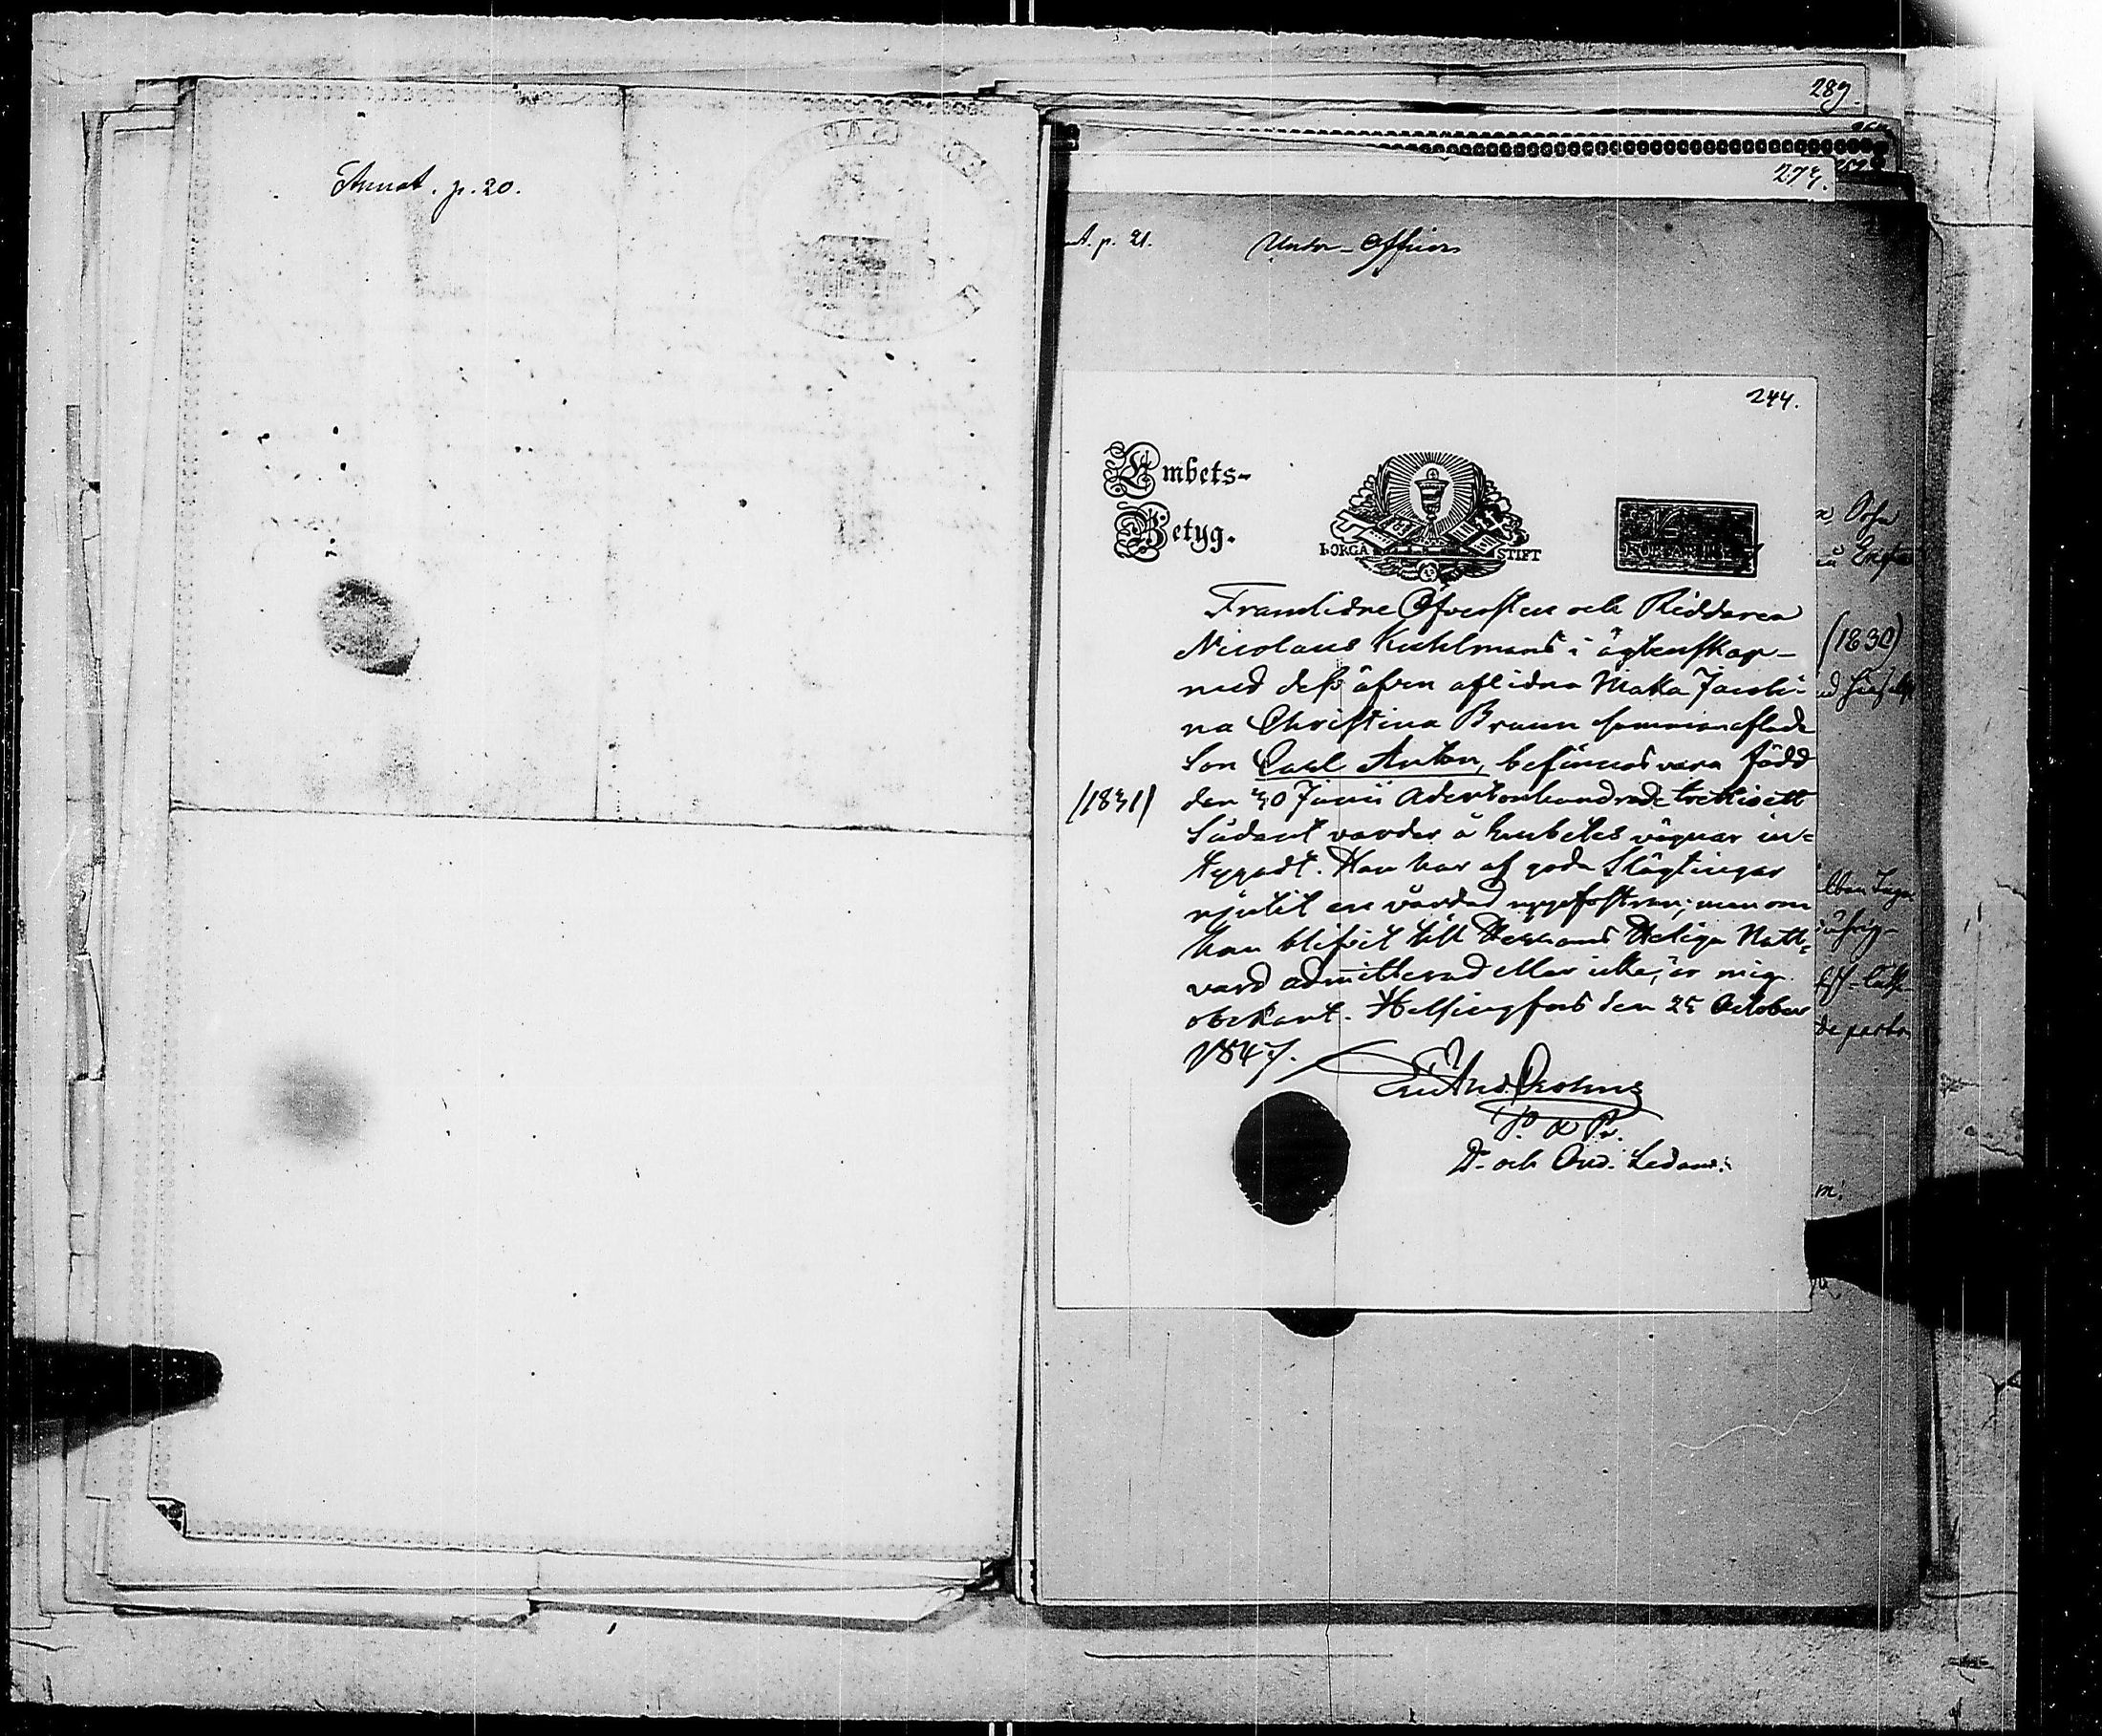 Annot. p. 20.
289.
274.
A. p. 21.
Under-Officer
244.
Embets-
Betyg.
BORGÅ STIFT
Framlidne Öfversten och Riddaren
Nicolaus Kuhlmans i ägtenskap
med dess äfven aflidna Maka Jacobi-
na Christina Bruun sammanaflade
Son Carl Anton, befinnes vara född
(1831) den 30 Junii Adertonhundrade trettioett
Sådant varder å Embetes vägnar in-
tygadt. Han har af goda Slägtingar
njutit en vårdad uppfostran; men om
han blifvit till Herrans Heliga Natt-
vard admitterad eller icke, är mig
obekant. Helsingfors den 25 October
1847.
P. & Pr.
D. och Ord. Ledam.
(1830)